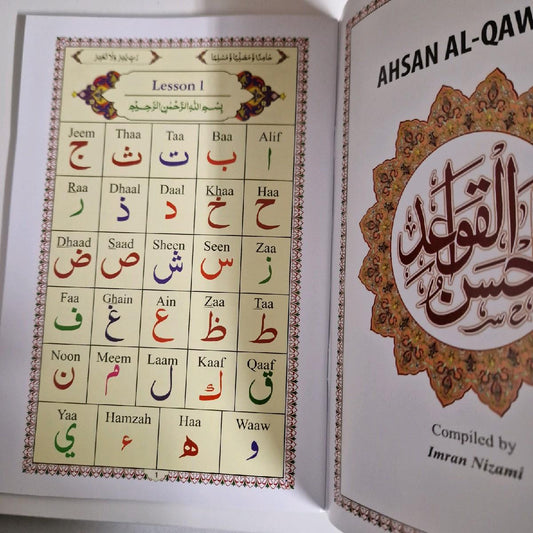 حَامِدًا وَّ مُصَلِّيًا وَّ مُسَلِّمًا رَبِّ يَسِّرْ وَلَا تُعَسِّرْ
Lesson 1
بِسْمِ اللهِ الرَّحْمٰنِ الرَّحِيْمِ
Jeem Thaa Taa Baa Alif
ا ب ت ث ج
Raa Dhaal Daal Khaa Haa
ح خ د ذ ر
Dhaad Saad Sheen Seen Zaa
ز س ش ص ض
Faa Ghain Ain Zaa Taa
ط ظ ع غ ف
Noon Meem Laam Kaaf Qaaf
ق ك ل م ن
Yaa Hamzah Haa Waaw
و ه ء ي
1
AHSAN AL-QAW
احسن القواعد
Compiled by
Imran Nizami